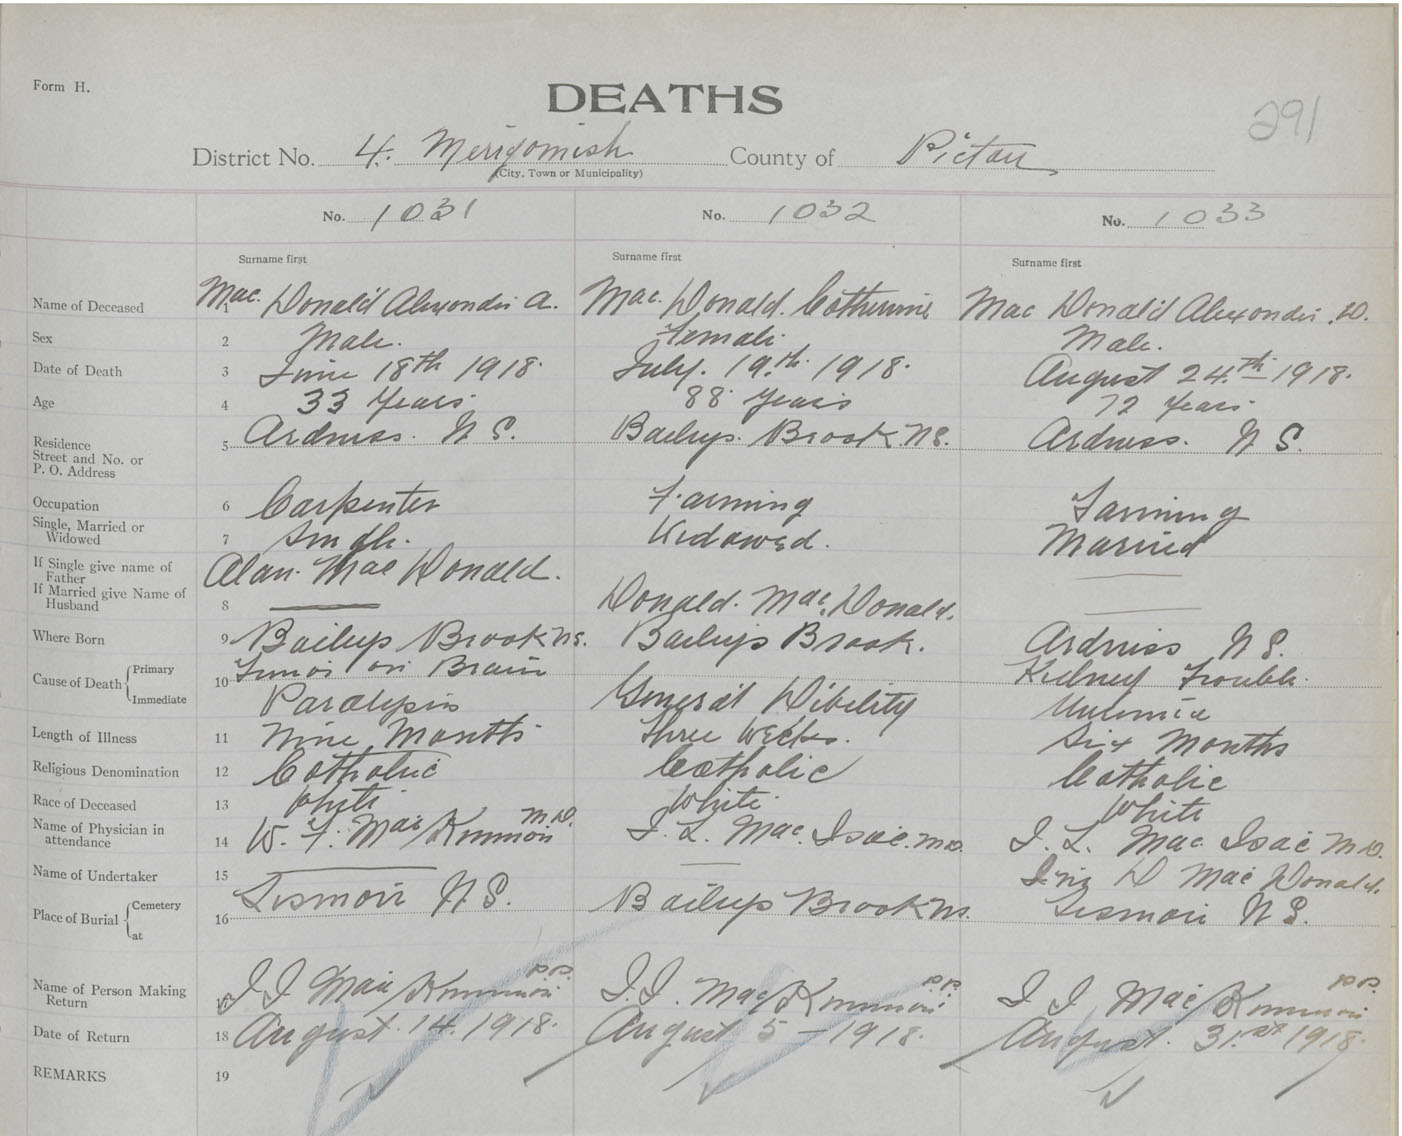 Form H.
DEATHS
291
District No. 4. Merigomish County of Pictou
(City, Town or Municipality)
No. 1031 No. 1032 No. 1033
Surname first Surname first Surname first
Name of Deceased 1 Mac. Donald Alexander A. Mac. Donald. Catherine Mac Donald Alexander .D.
Sex 2 Male. Female. Male.
Date of Death 3 June 18th 1918. July. 19.th. 1918. August 24.th 1918.
Age 4 33 Years 88 Years 72 Years
Residence Street and No. or P. O. Address 5 Ardness. N S. Baileys. Brook. N S. Ardness. N S.
Occupation 6 Carpenter Farming Farming
Single, Married or Widowed 7 Single. Widowed. Married
If Single give name of Father Alan. Mac Donald.
If Married give Name of Husband 8 Donald. Mac. Donald.
Where Born 9 Baileys Brook N S. Baileys Brook. Ardness N S.
Cause of Death Primary 10 Tumor on Brain Kidney Trouble.
Immediate Paralysis General Debility Uremia
Length of Illness 11 Nine Months Three Weeks. Six Months
Religious Denomination 12 Catholic Catholic Catholic
Race of Deceased 13 White White White
Name of Physician in attendance 14 W. F. Mac Kinnon M D. J. L. Mac. Isaac. M D. J. L. Mac Isaac M D.
Name of Undertaker 15 D Mac Donald.
Place of Burial Cemetery at 16 Lismore N S. Baileys Brook N S. Lismore N S.
Name of Person Making Return 17 J J Mac Kinnon P.P. J. J. Mac Kinnon P.P. J J Mac Kinnon P.P.
Date of Return 18 August. 14. 1918. August 5 - 1918. August. 31.st 1918.
REMARKS 19